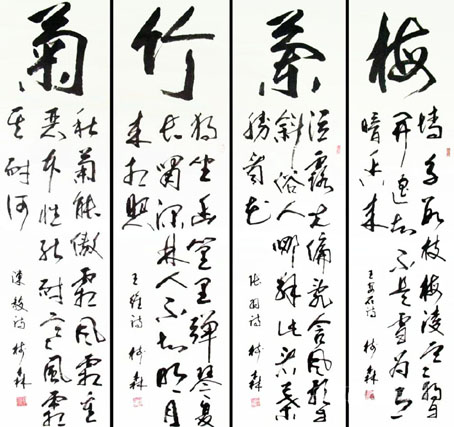 梅
墙角数枝梅凌寒独自
开遥知不是雪为有
暗香来
王安石诗 树森
蘭
泣露光偏乱含风影自
斜俗人哪解此看叶
胜看花
张羽诗 树森
竹
独坐幽篁里弹琴复
长啸深林人不知明月
来相照
王维诗 树森
菊
秋菊能傲霜风霜重重
恶本性能耐寒风霜
其耐何
陈毅诗 树森